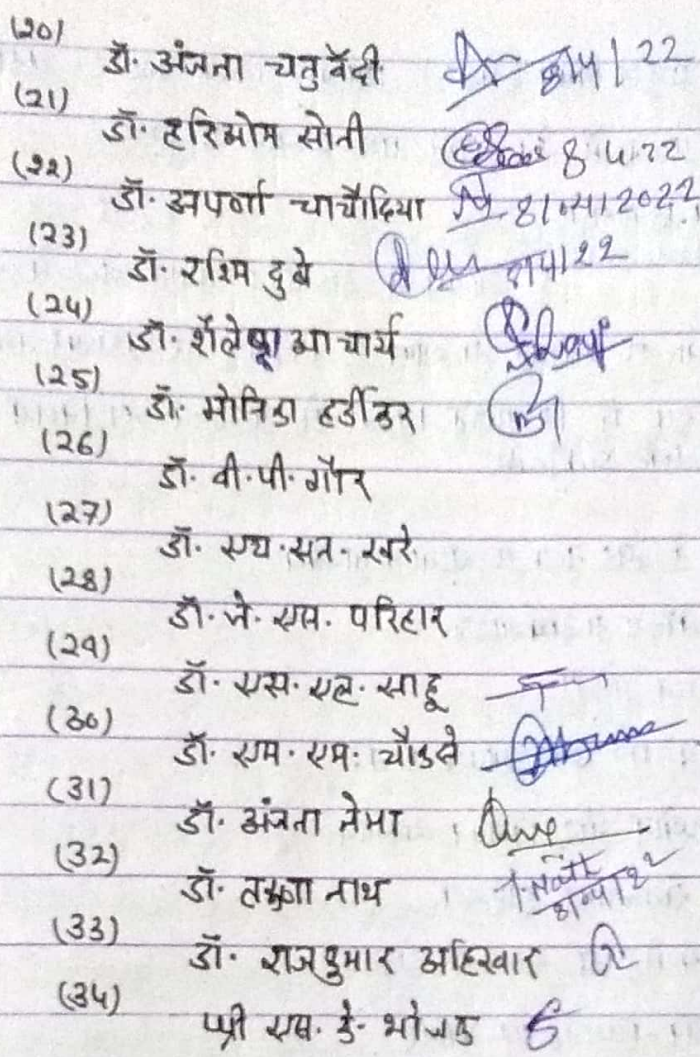 (20)
डॉ. अंजना चतुर्वेदी 8/4/22
(21)
डॉ. हरिओम सोनी 8.4.22
(22)
डॉ. अपर्णा चाचौदिया 8/04/2022
(23)
डॉ. रश्मि दुबे 8/4/22
(24)
डॉ. शैलेष आचार्य
(25)
डॉ. मोनिका हर्डीकर
(26)
डॉ. वी. पी. गौर
(27)
डॉ. एच. एन. खरे
(28)
डॉ. जे. एम. परिहार
(29)
डॉ. एस. एल. साहू
(30)
डॉ. एम. एम. चौकसे
(31)
डॉ. अंजना नेमा
(32)
डॉ. नाथ T. Nath
8/04/22
(33)
डॉ. राजकुमार अहिरवार
(34)
श्री एम. के.